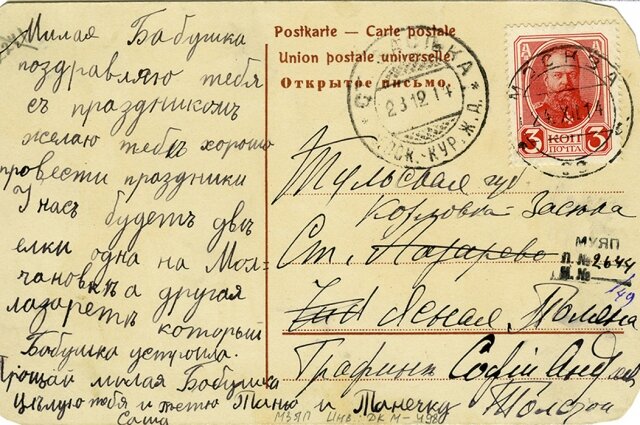 Милая Бабушка
поздравляю тебя
съ праздникомъ
желаю тебѣ хорошо
провести праздники
У насъ будетъ двѣ
елки одна на Мол-
чановкѣ а другая
лазаретъ который
Бабушка устроила.
Прощай милая Бабушка
Цѣлую тебя и тетю Таню и Танечку
Саша
Postkarte — Carte postale
Union postale universelle
Открытое письмо.
ЗАСѢКА
23 12 14
МОСК.-КУР. Ж.Д.
МОСКВА
14
3 КОП 3
ПОЧТА
Тульская губ
Козловка Засѣка
Ст. Лазарево
Ясная Поляна
Графинѣ Софіи Андр
Толстой
МУЯП
П. № 2644
И. №
149
МЗЯП Инв. ДКМ-4980